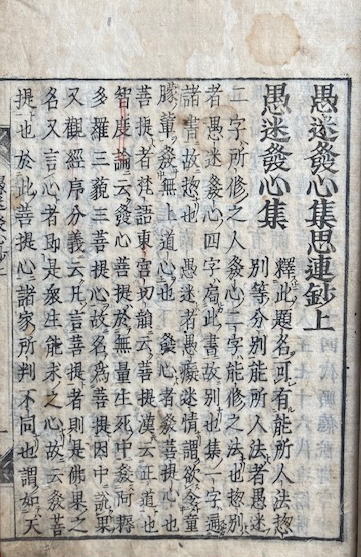 愚迷發心集思連鈔上
愚迷發心集
釋此題名可有能所人法惣
別等分別能所人法者愚迷
二字所修之人發心二字能修之法也惣別
者愚迷發心四字屬此書故別也集一字通
諸情故惣也愚迷者愚癡迷情謂欲令童
朦輩發無上道心也發心者發菩提心也
菩提者梵語東宮切韻云菩提漢云正道也
智度論云發心菩提於無量生死中發阿耨
多羅三藐三菩提心故名為菩提因中說果
又觀經序分義云凡言菩提者則是佛果之
名又言心者即是衆生能求之心故云發菩
提也於此菩提心諸家所判不同也謂如天